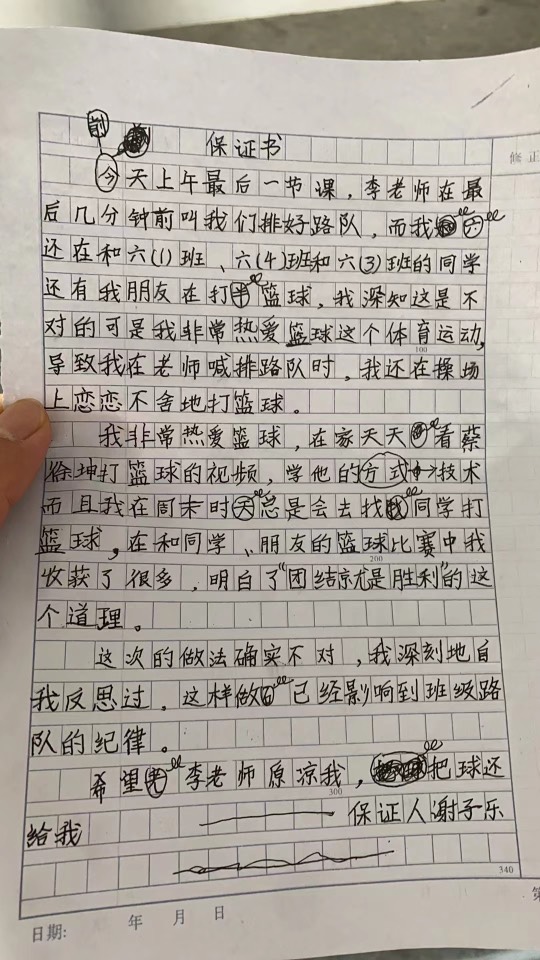 前
保证书
今天上午最后一节课，李老师在最
后几分钟前叫我们排好路队，而我
还在和六(1)班、六(4)班和六(3)班的同学
还有我朋友在打篮球，我深知这是不
对的可是我非常热爱篮球这个体育运动，
100
导致我在老师喊排路队时，我还在操场
上恋恋不舍地打篮球。
我非常热爱篮球，在家天天看蔡
徐坤打篮球的视频，学他的方式技术
而且我在周末时总是会去找同学打
篮球，在和同学、朋友的篮球比赛中我
200
收获了很多，明白了“团结就是胜利”的这
个道理。
这次的做法确实不对，我深刻地自
我反思过，这样做已经影响到班级路
队的纪律。
希望李老师原凉我，把球还
300
给我 保证人谢子乐
340
日期： 年 月 日
修正
第